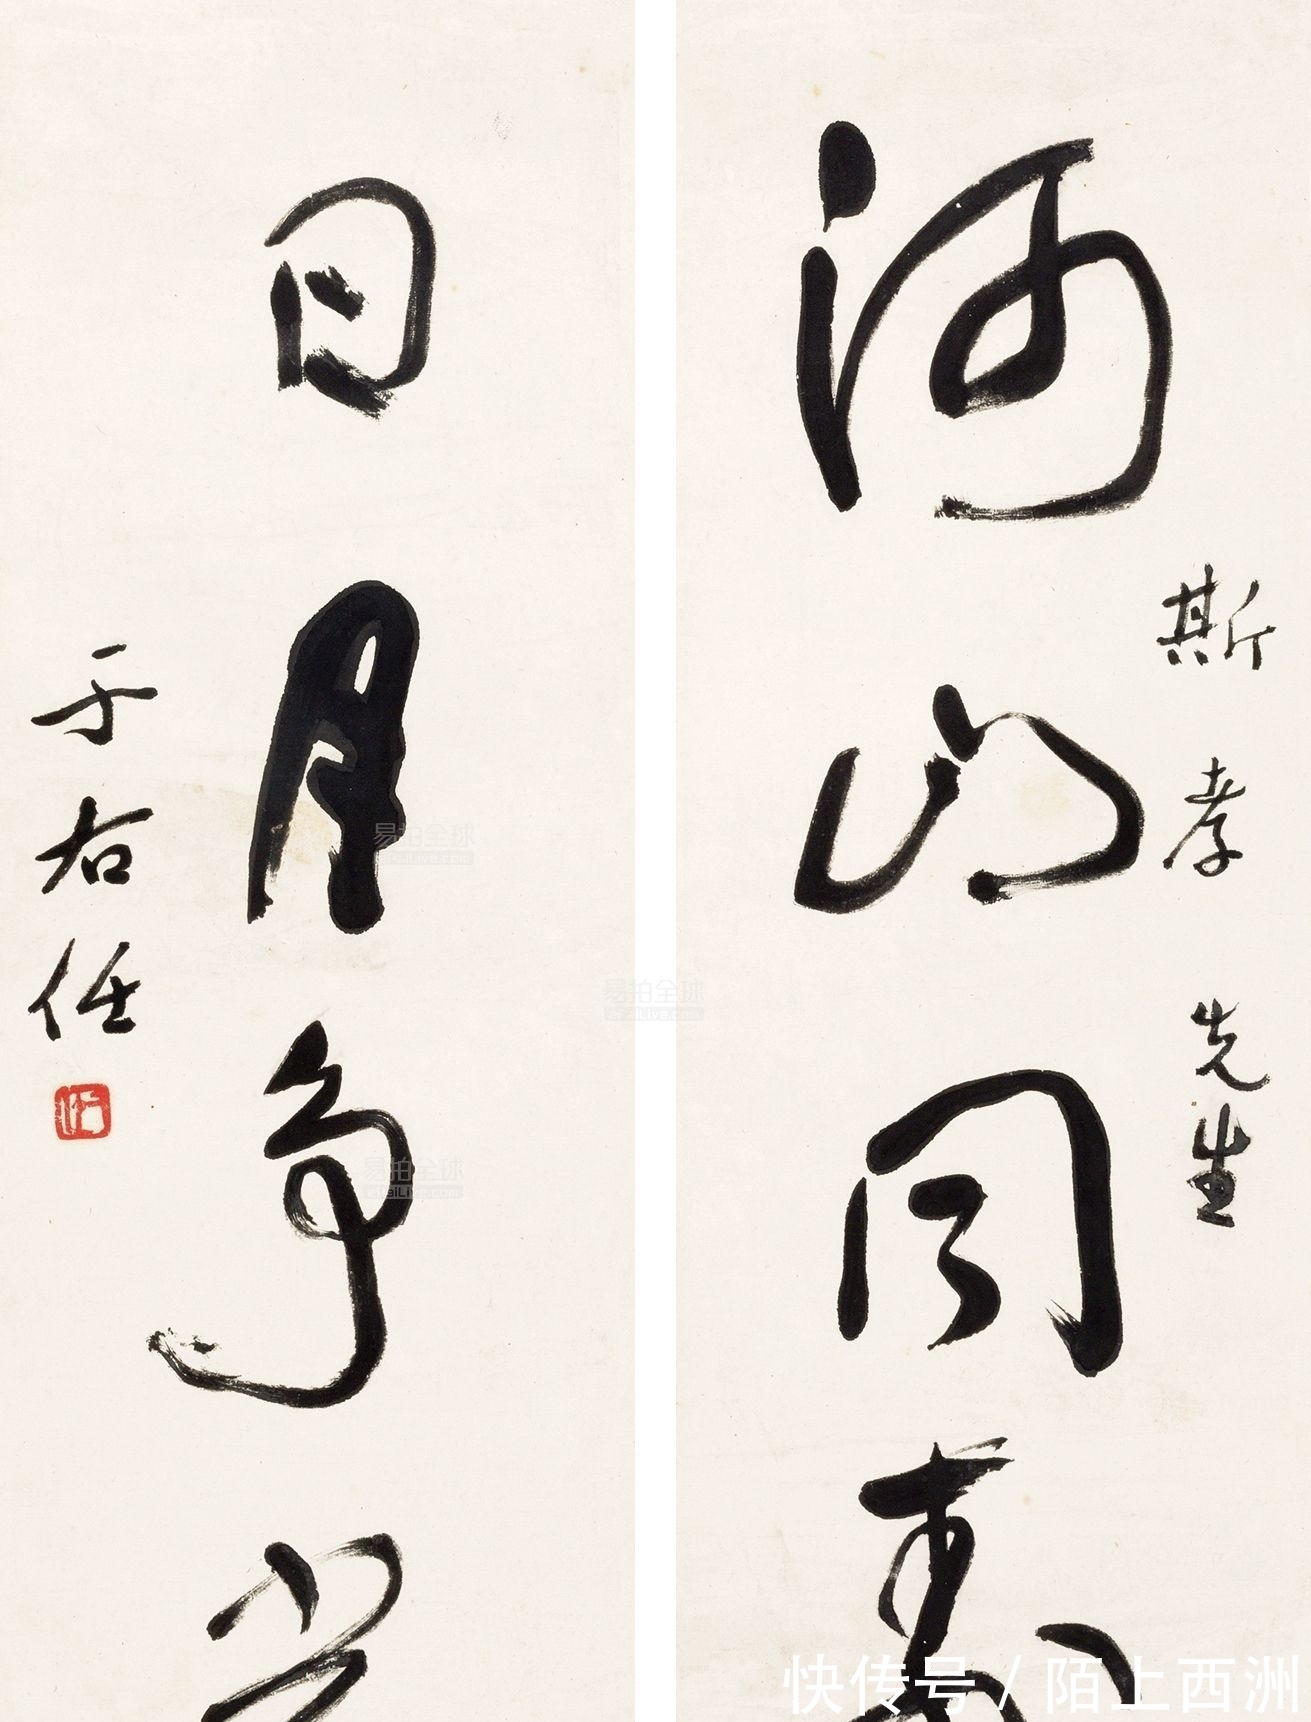 斯孝先生
河山同寿
日月争光
于右任
易拍全球
易拍全球
易拍全球
快传号 / 陌上西洲